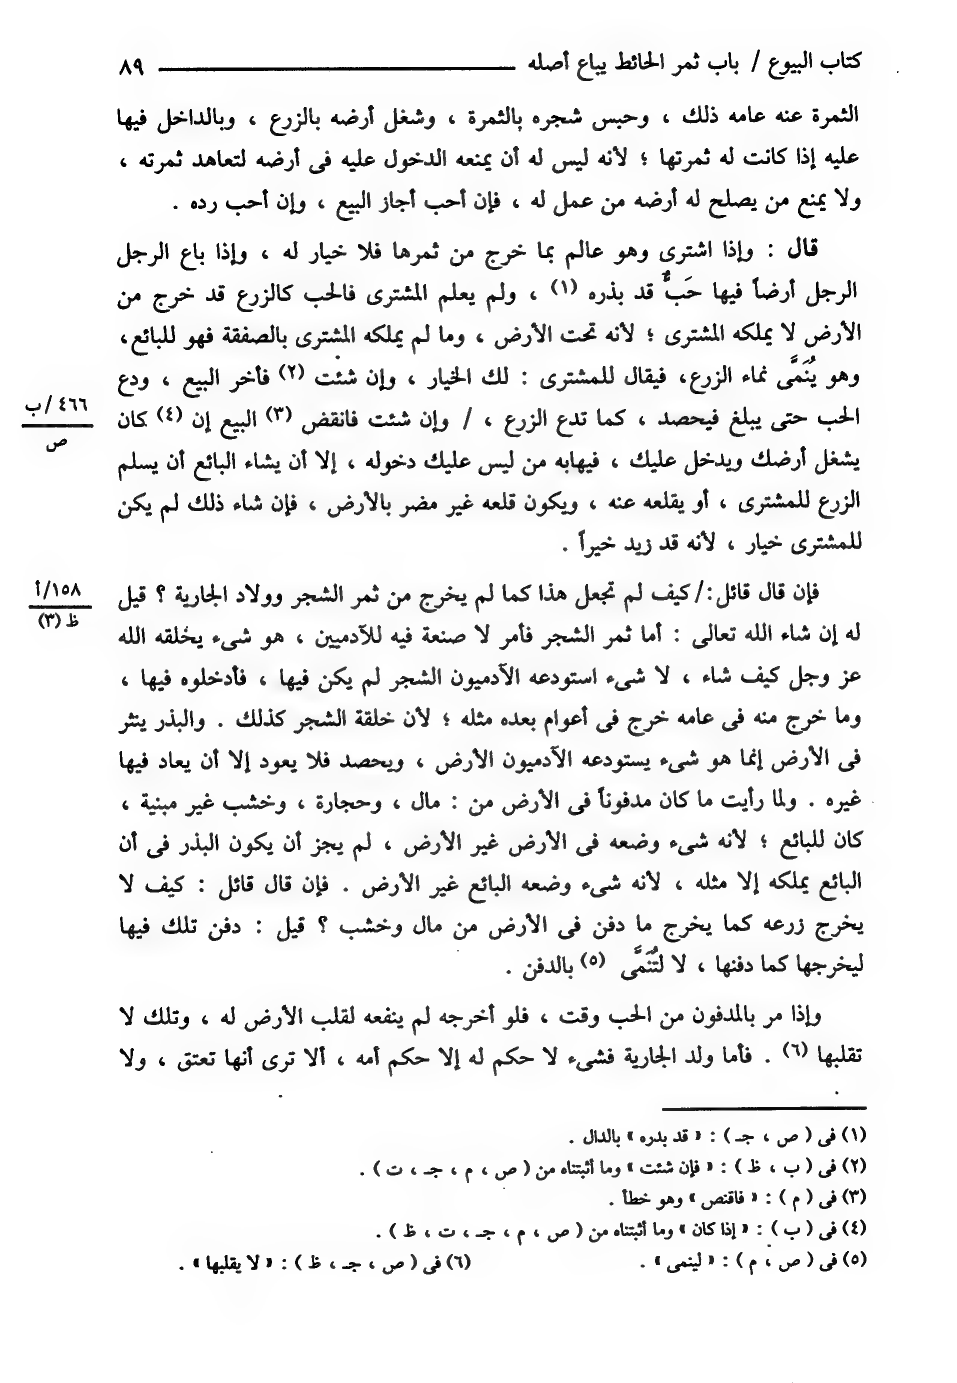 كتاب البيوع / باب ثمر الحائط يباع أصله ٨٩
الثمرة عنه عامه ذلك ، وحبس شجره بالثمرة ، وشغل أرضه بالزرع ، وبالداخل فيها
عليه إذا كانت له ثمرتها ؛ لأنه ليس له أن يمنعه الدخول عليه فى أرضه لتعاهد ثمرته ،
ولا يمنع من يصلح له أرضه من عمل له ، فإن أحب أجاز البيع ، وإن أحب رده .
قال : وإذا اشترى وهو عالم بما خرج من ثمرها فلا خيار له ، وإذا باع الرجل
الرجل أرضاً فيها حَبٌّ قد بذره (١) ، ولم يعلم المشترى فالحب كالزرع قد خرج من
الأرض لا يملكه المشترى ؛ لأنه تحت الأرض ، وما لم يملكه المشترى بالصفقة فهو للبائع،
وهو يُنَمَّى نماء الزرع، فيقال للمشترى : لك الخيار ، وإن شئت (٢) فأخر البيع ، ودع
الحب حتى يبلغ فيحصد ، كما تدع الزرع ، / وإن شئت فانقض (٣) البيع إن (٤) كان
٤٦٦/ب
ص
يشغل أرضك ويدخل عليك ، فيهابه من ليس عليك دخوله ، إلا أن يشاء البائع أن يسلم
الزرع للمشترى ، أو يقلعه عنه ، ويكون قلعه غير مضر بالأرض ، فإن شاء ذلك لم يكن
للمشترى خيار ، لأنه قد زيد خيراً .
فإن قال قائل:/ كيف لم تجعل هذا كما لم يخرج من ثمر الشجر وولاد الجارية ؟ قيل
١٥٨/أ
ظ (٣)
له إن شاء الله تعالى : أما ثمر الشجر فأمر لا صنعة فيه للآدميين ، هو شىء يخلقه الله
عز وجل كيف شاء ، لا شىء استودعه الآدميون الشجر لم يكن فيها ، فأدخلوه فيها ،
وما خرج منه فى عامه خرج فى أعوام بعده مثله ؛ لأن خلقة الشجر كذلك . والبذر ينثر
فى الأرض إنما هو شىء يستودعه الآدميون الأرض ، ويحصد فلا يعود إلا أن يعاد فيها
غيره . ولما رأيت ما كان مدفوناً فى الأرض من : مال ، وحجارة ، وخشب غير مبنية ،
كان للبائع ؛ لأنه شىء وضعه فى الأرض غير الأرض ، لم يجز أن يكون البذر فى أن
البائع يملكه إلا مثله ، لأنه شىء وضعه البائع غير الأرض . فإن قال قائل : كيف لا
يخرج زرعه كما يخرج ما دفن فى الأرض من مال وخشب ؟ قيل : دفن تلك فيها
ليخرجها كما دفنها ، لا لتُنَمَّى (٥) بالدفن .
وإذا مر بالمدفون من الحب وقت ، فلو أخرجه لم ينفعه لقلب الأرض له ، وتلك لا
تقلبها (٦) . فأما ولد الجارية فشىء لا حكم له إلا حكم أمه ، ألا ترى أنها تعتق ، ولا
(١) فى ( ص ، جـ ) : « قد بدره » بالدال .
(٢) فى ( ب ، ظ ) : « فإن شئت » وما أثبتناه من ( ص ، م ، جـ ، ت ) .
(٣) فى ( م ) : « فاقنص » وهو خطأ .
(٤) فى ( ب ) : « إذا كان » وما أثبتناه من ( ص ، م ، جـ ، ت ، ظ ) .
(٥) فى ( ص ، م ) : « لينمى » . (٦) فى ( ص ، جـ ، ظ ) : « لا يقلبها » .